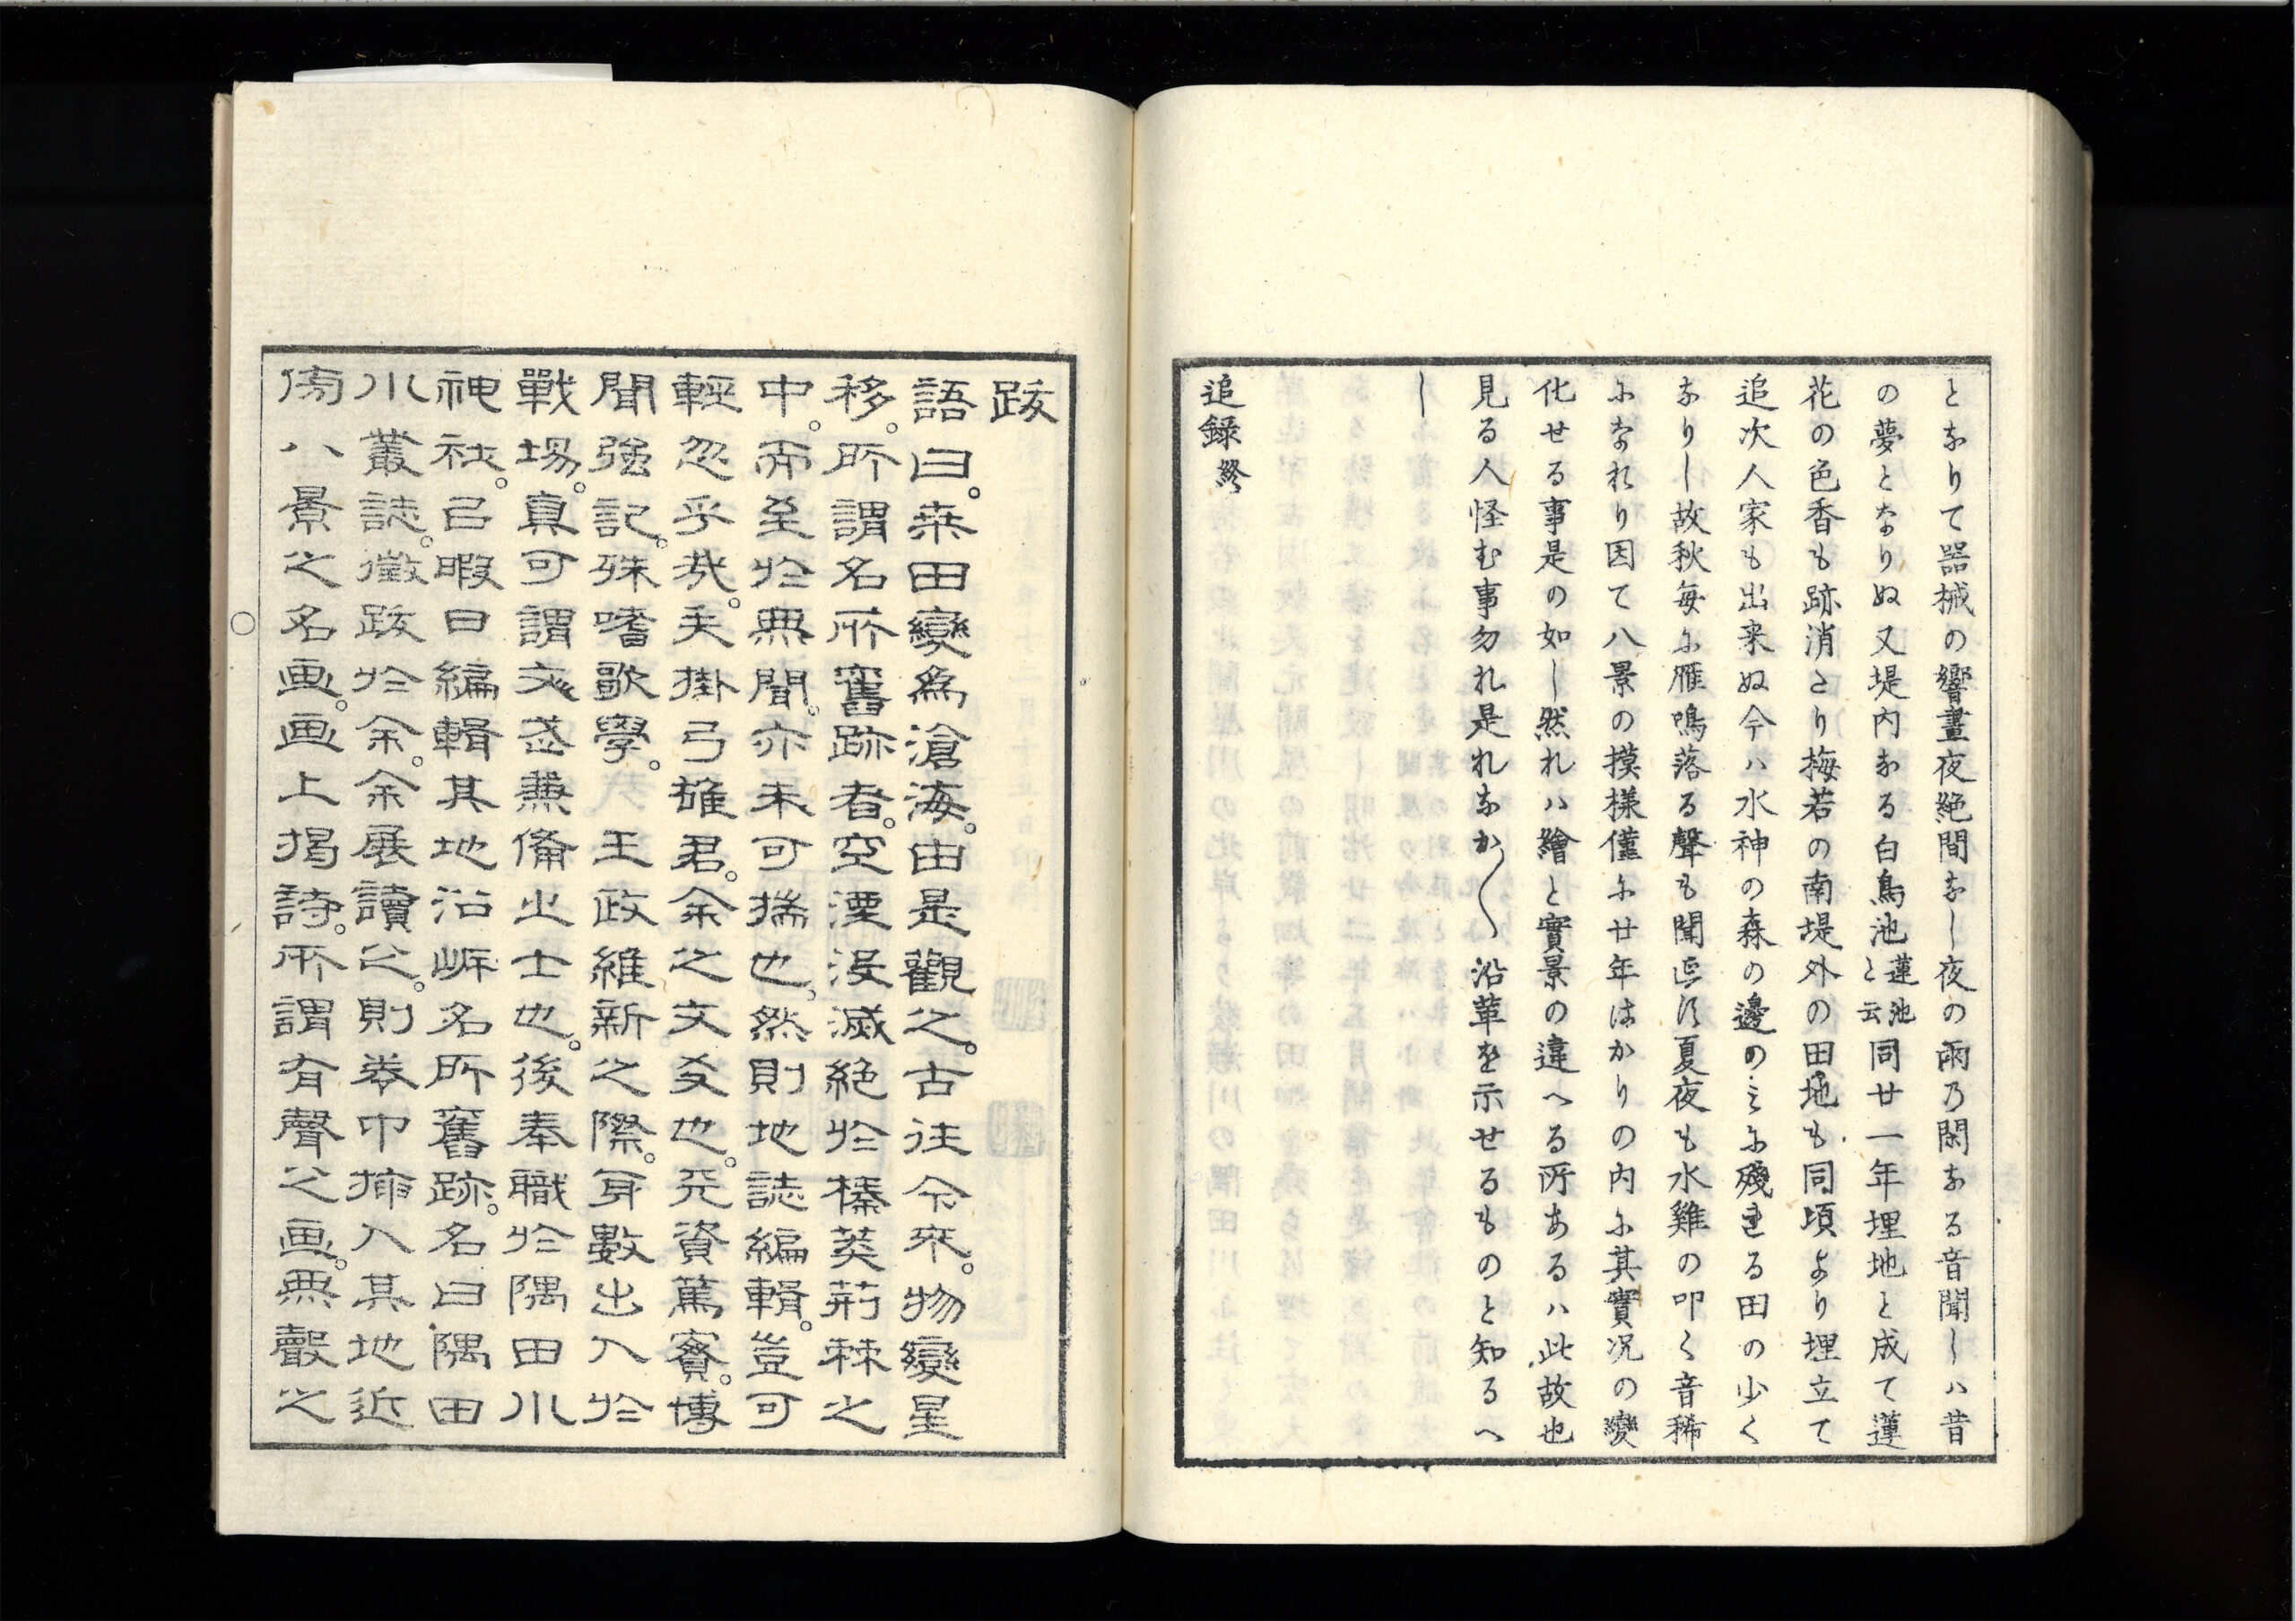 となりて器械の響晝夜絶間なし夜の雨乃閑なる音聞しハ昔
の夢となりぬ又堤内なる白鳥池蓮池と云同廿一年埋地と成て蓮
花の色香も跡消さり梅若の南堤外の田地も同頃より埋立て
追次人家も出来ぬ今ハ水神の森の邊のミに殘れる田の少く
なりし故秋毎に雁鳴落る聲も聞ず夏夜も水雞の叩く音稀
になれり因て八景の摸様僅に廿年はかりの内に其實況の變
化せる事是の如し然れハ繪と實景の違へる所あるハ此故也
見る人怪む事勿れ是れなか〱沿革を示せるものと知るへ
し
追録終
跋
語曰。桒田變爲滄海。由是觀之。古往今來。物變星
移。所謂名所舊跡者。空湮没滅絶於榛莽荊棘之
中。而至於無聞。亦未可揣也。然則地誌編輯。豈可
輕忽乎哉。矢掛弓雄君。余之文友也。天資篤賓。博
聞強記。殊嗜歌學。王政維新之際。身數出入於
戰場。真可謂文武兼備之士也。後奉職於隅田川
神社。公暇日編輯其地沿岸名所舊跡。名曰隅田
川叢誌。徵跋於余。余展讀之。則卷中揷入其地近
傍八景之名画。画上揭詩。所謂有聲之画。無聲之